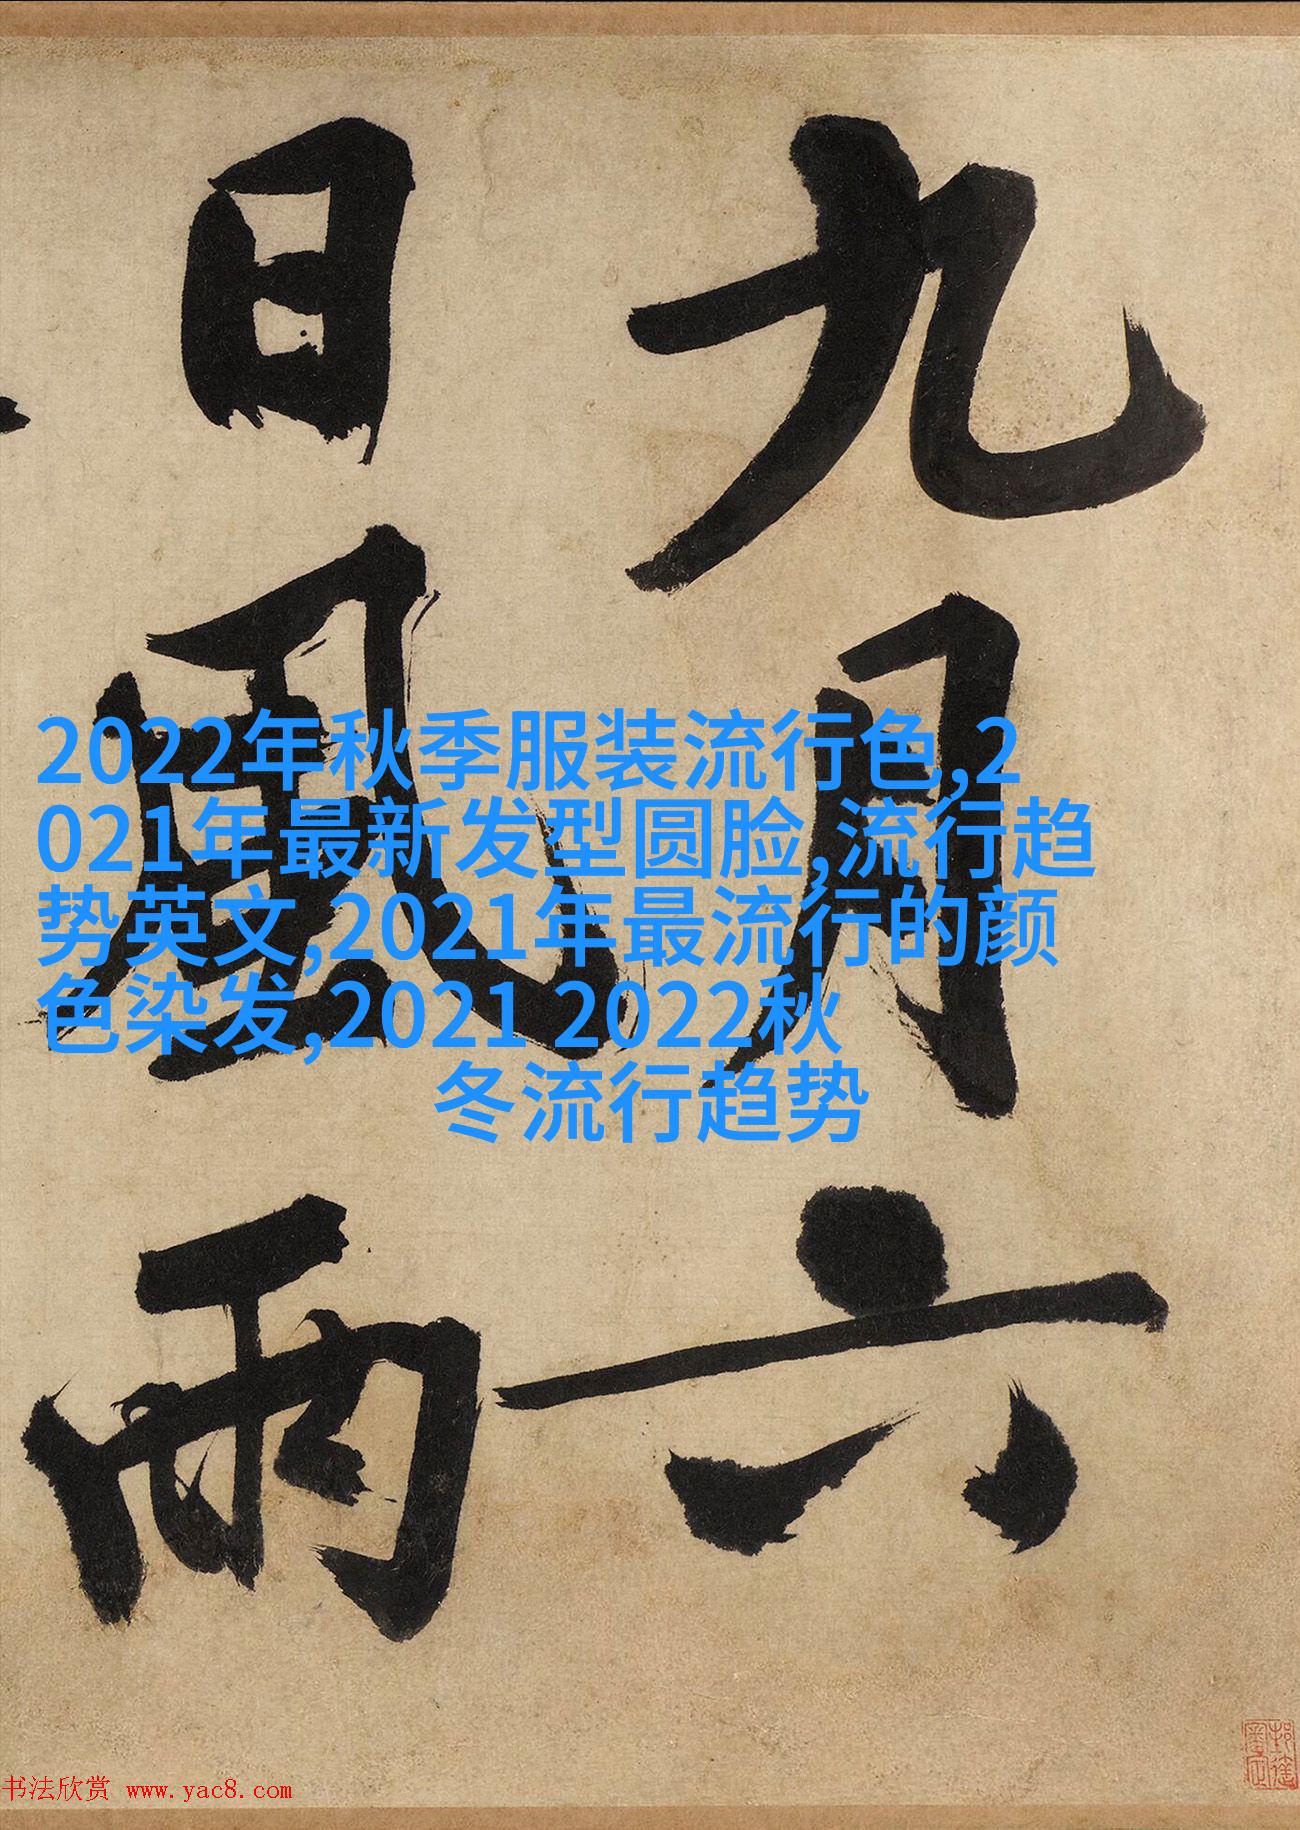 九月六
日風雨
2022年秋季服装流行色,2
021年最新发型圆脸,流行趋
势英文,2021年最流行的颜
色染发,2021 2022秋
冬流行趋势
书法欣赏 www.yac8.com